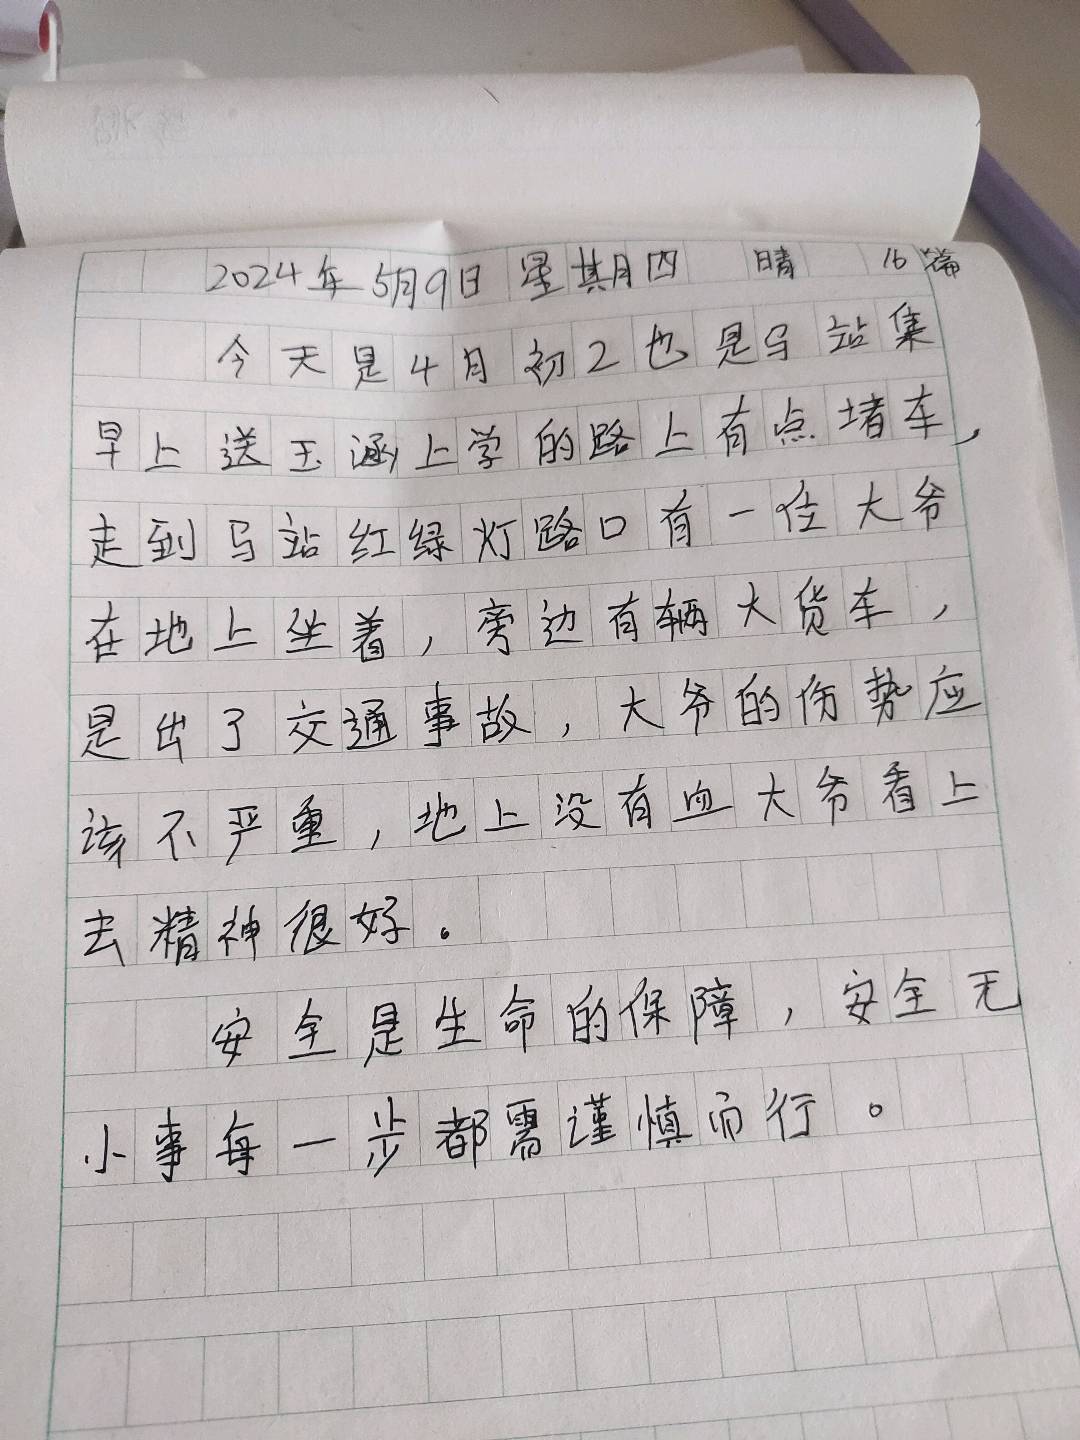 2024年5月9日 星期四 晴 16篇
今天是4月初2也是马站集
早上送玉涵上学的路上有点堵车,
走到马站红绿灯路口有一位大爷
在地上坐着,旁边有辆大货车,
是出了交通事故,大爷的伤势应
该不严重,地上没有血大爷看上
去精神很好。
安全是生命的保障,安全无
小事每一步都需谨慎而行。